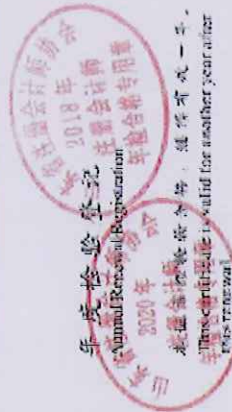 年度检验登记
Annual Renewal Registration
本证书经检验合格，继续有效一年。
This certificate is valid for another year after
this renewal.
2018年
注册会计师
年检合格专用章
2020年
注册会计师
年检合格专用章